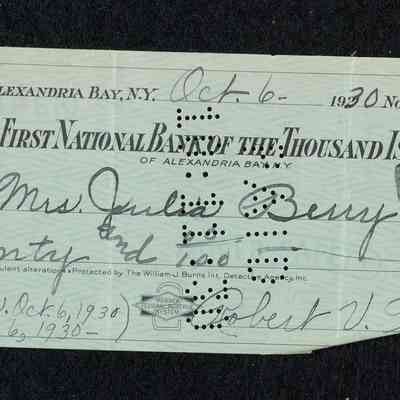 ALEXANDRIA BAY, N.Y. Oct. 6 - 1930 No
FIRST NATIONAL BANK OF THE THOUSAND IS
OF ALEXANDRIA BAY, N.Y.
Mrs. Julia Berry
and no/100
ulent alterations Protected by The William J. Burns Int. Detective Agency, Inc.
Oct. 6, 1930)
6, 1930 - Robert V.